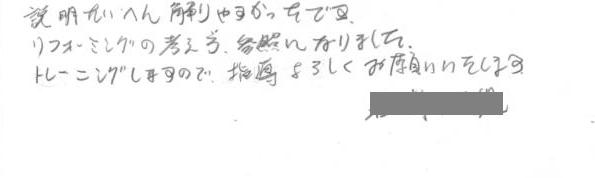 説明たいへん解りやすかったです。
リフォーミングの考え方、参照になりました。
トレーニングしますので、指導よろしくお願いいたします